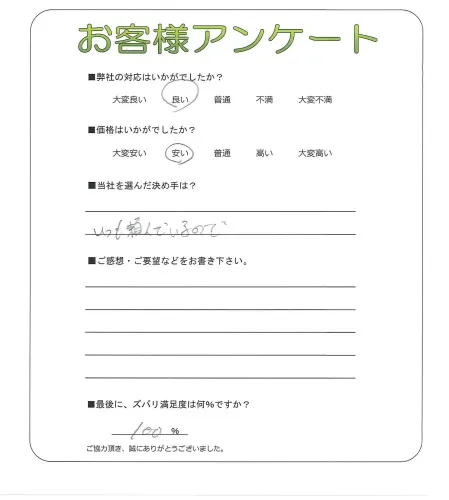 お客様アンケート
■弊社の対応はいかがでしたか？
大変良い 良い 普通 不満 大変不満
■価格はいかがでしたか？
大変安い 安い 普通 高い 大変高い
■当社を選んだ決め手は？
いつも頼んでいるので
■ご感想・ご要望などをお書き下さい。
■最後に、ズバリ満足度は何%ですか？
100 %
ご協力頂き、誠にありがとうございました。